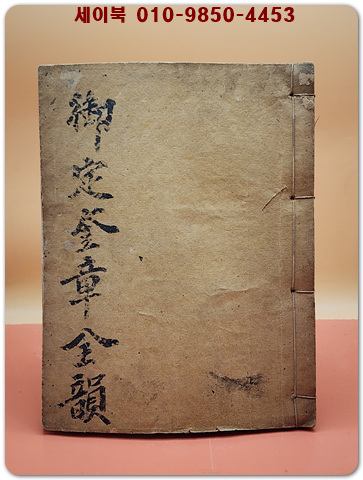 세이북 010-9850-4453
御定奎章全韻